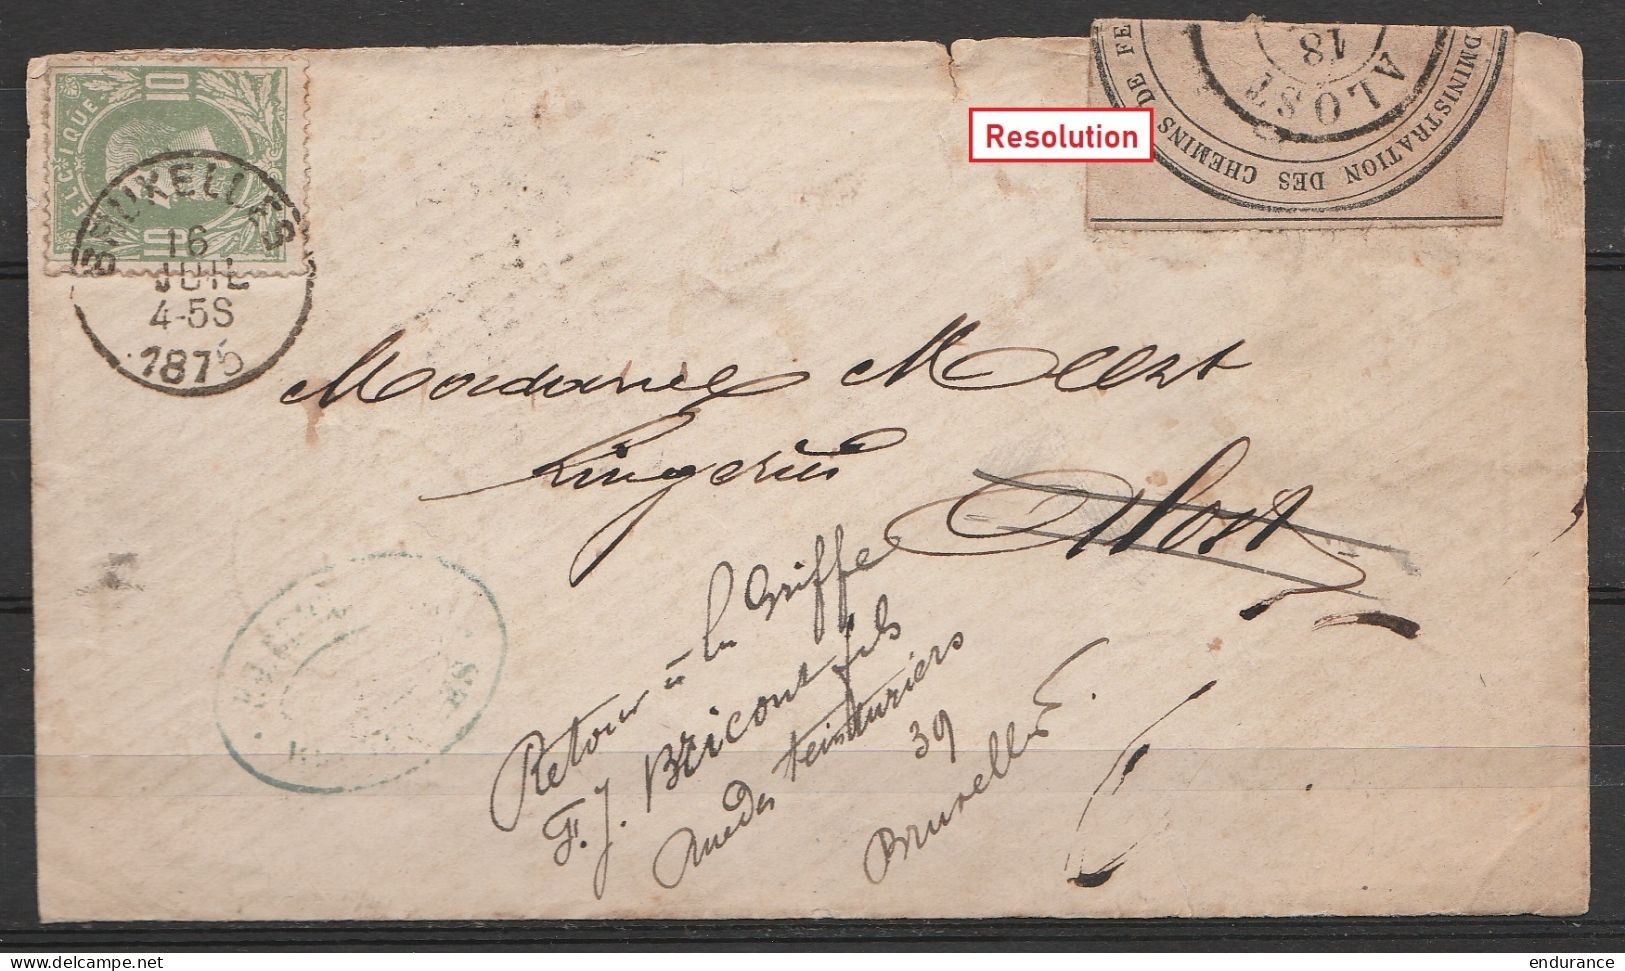 DMINISTRATION DES CHEMINS DE FE
ALOST
18
Resolution
10
GIQUE
10
BRUXELLES
16
JUIL
4-5S
1875
Madame Meert
Lingeries
Alost
Retour à la Griffe
F. J. Bricout fils
rue des teinturiers
39
Bruxelles
endurance
© www.delcampe.net